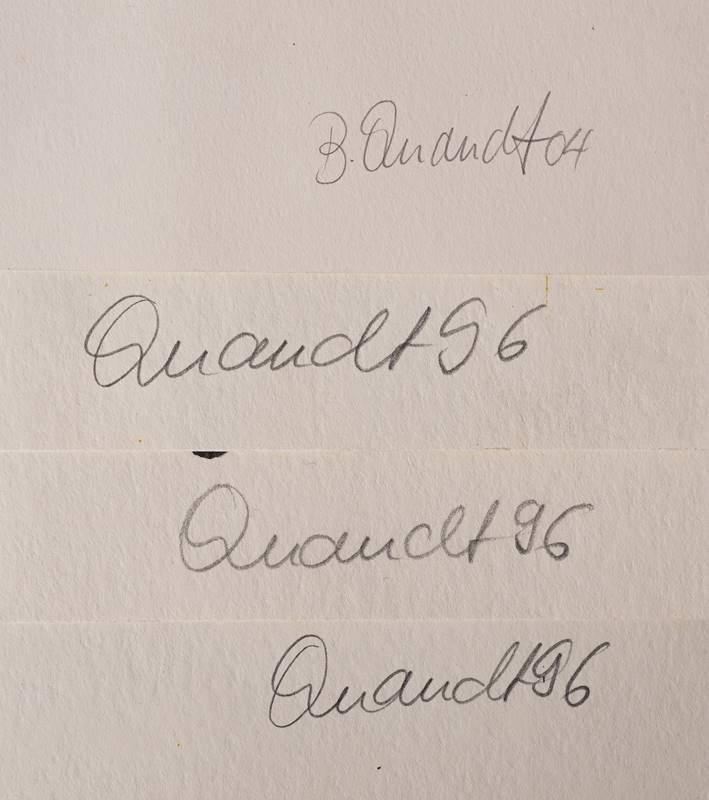 B. Quandt 04
Quandt 96
Quandt 96
Quandt 96